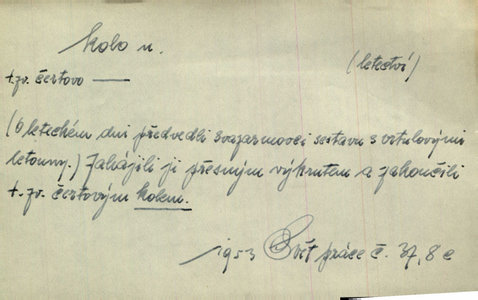 kolo n.
(letectví)
t.zv. čertovo —
(O leteckém dni předvedli svazarmovci sestavu s vrtulovými
letouny.) Zahájili ji přesným výkrutem a zakončili
t. zv. čertovým kolem.
1953 Svět práce č. 37, 8 c